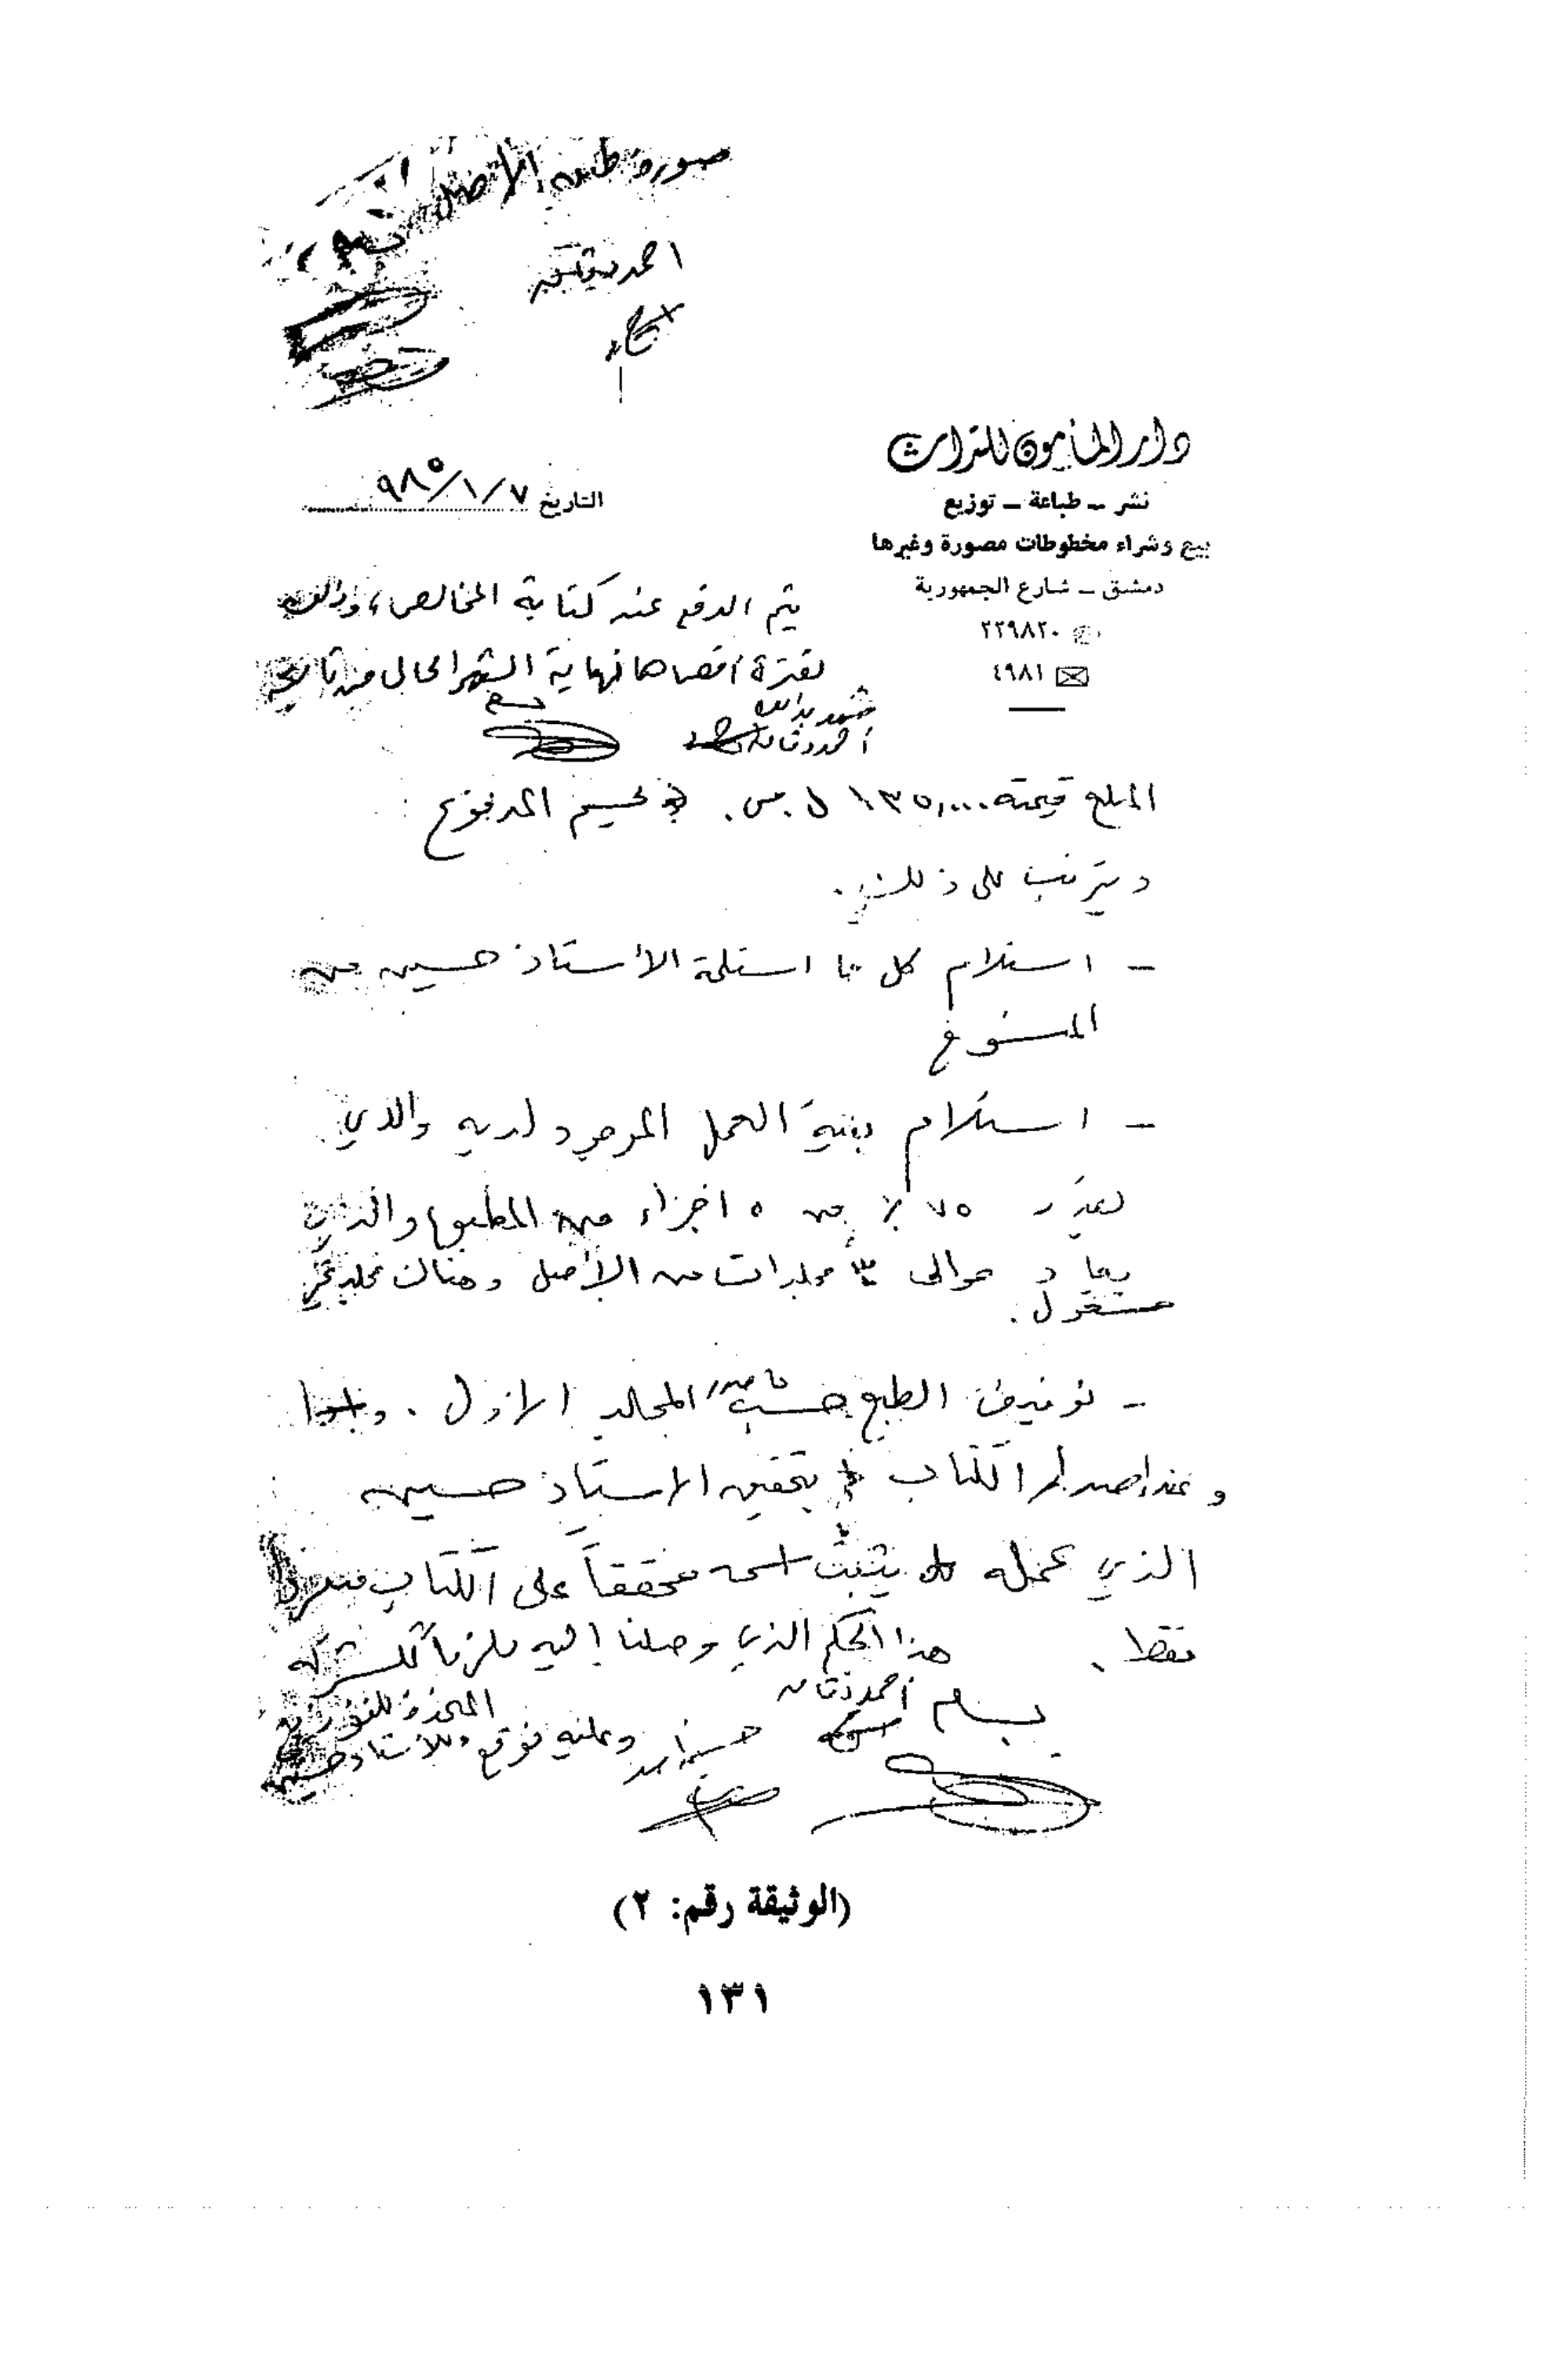 صورة طبق الأصل
احمد دقاق
دار المأمون للتراث
نشر ـ طباعة ـ توزيع
بيع وشراء مخطوطات مصورة وغيرها
دمشق ـ شارع الجمهورية
٢٢٩٨٢٠
٤٩٨١
التاريخ ٧/١/٩٨٥
يتم الدفع عند كتابة المخالصة، وذلك
لفترة أقصاها نهاية الشهر الحالي من تاريخه
أحمد دقاق
المبلغ قيمته ١٣٥,٠٠٠ ل.س. يحسم المدفوع
ويترتب على ذلك
ـ استلام كل ما استلمه الأستاذ حسين من
المنسوخ
ـ استلام بقية العمل الموجود لديه والذي
يقدر ٧٥٪ من ٥ اجزاء من المطبوع والذي
يعادل حوالي ٣ مجلدات من الأصل وهناك مجلد غير
مشغول.
ـ توقيف الطبع المجلد الاول.
وعند إصدار الكتاب بتحقيق الاستاذ حسين
الذي عمله يثبت اسمه محققاً على الكتاب
فقط.
هذا الحكم الذي وصلنا إليه ملزماً للشركة
بسام
أحمد دقاق
حسين أسد
وعليه نوقع وللأستاذ حسين
(الوثيقة رقم: ٢)
١٣١